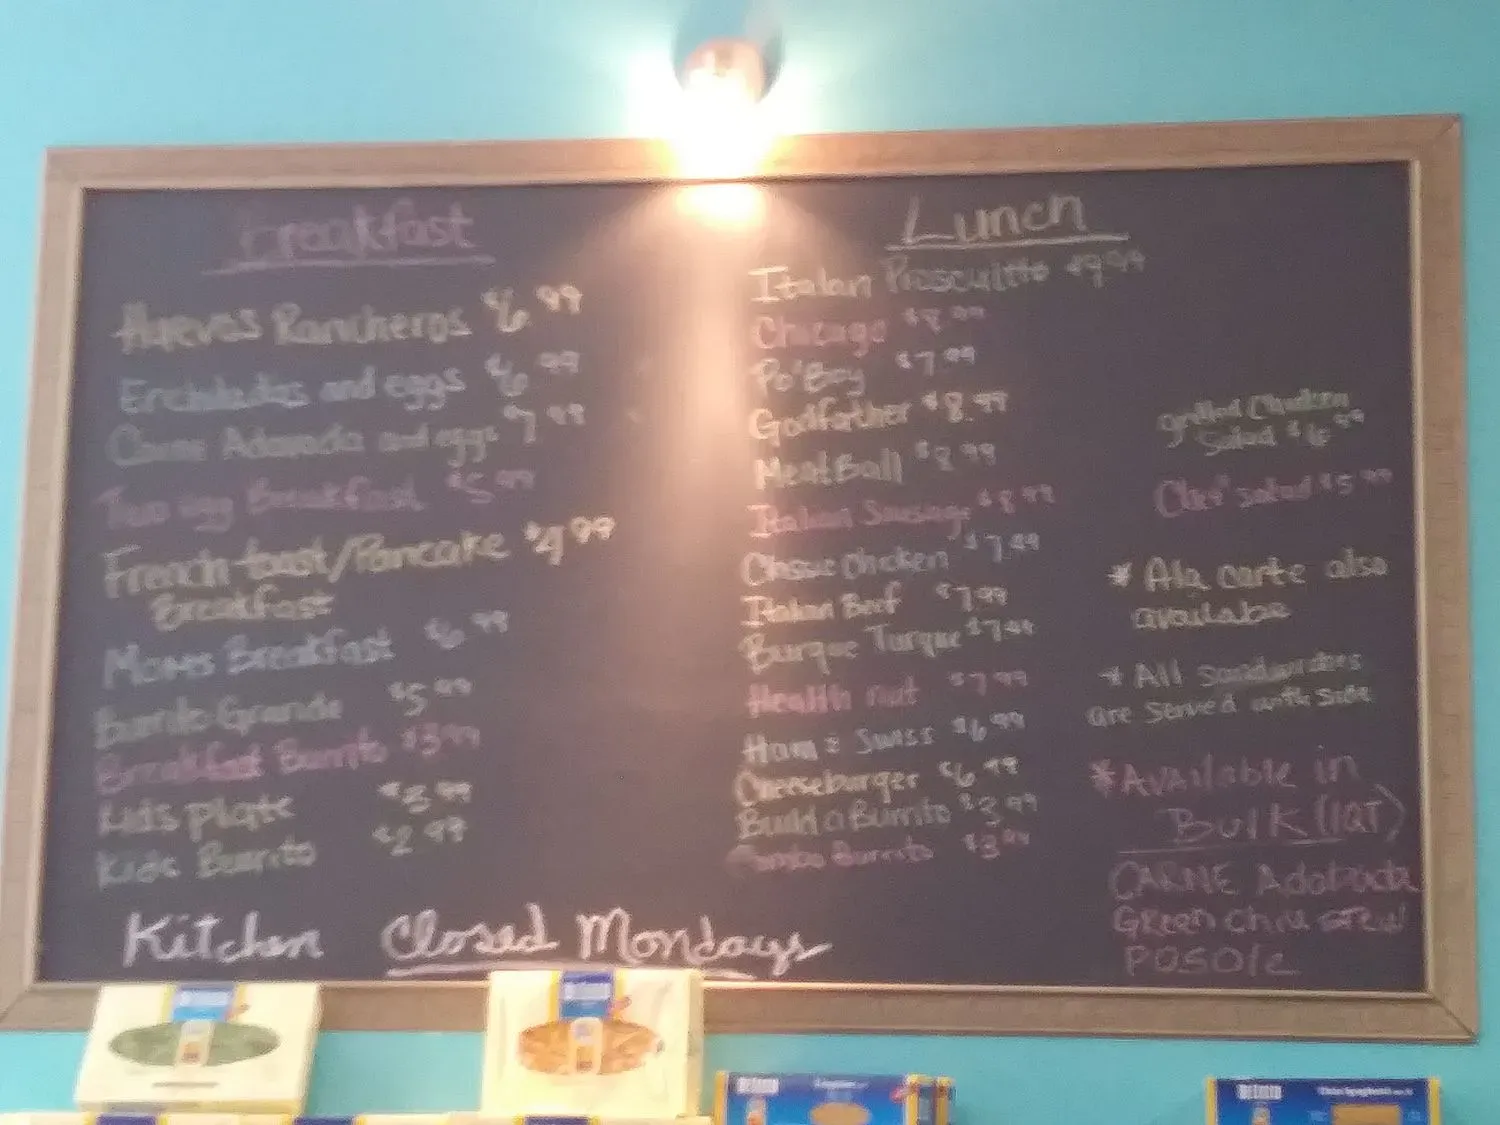 breakfast
Huevos Rancheros $6.99
Enchiladas and eggs $6.99
Carne Adovada and eggs $7.99
Two egg Breakfast $5.99
French toast/Pancake $4.99
Breakfast
Moms Breakfast $6.99
Burrito Grande $5.99
Breakfast Burrito $3.99
Kids Plate $3.99
Kids Burrito $2.99
Kitchen Closed Mondays
Lunch
Italian Proscuitto $9.99
Chicago $8.99
Po'Boy $7.99
Godfather $8.99
MeatBall $8.99
Italian Sausage $8.99
Classic Chicken $7.99
Italian Beef $7.99
Burque Turque $7.99
Health nut $7.99
Ham & Swiss $6.99
Cheeseburger $6.99
Build a Burrito $3.99
Burrito $3.99
grilled Chicken
Salad $6.99
Chef salad $5.99
* Ala carte also
available
* All sandwiches
are served with side
*Available in
Bulk (1QT)
CARNE Adobada
Green Chile stew
POSOle